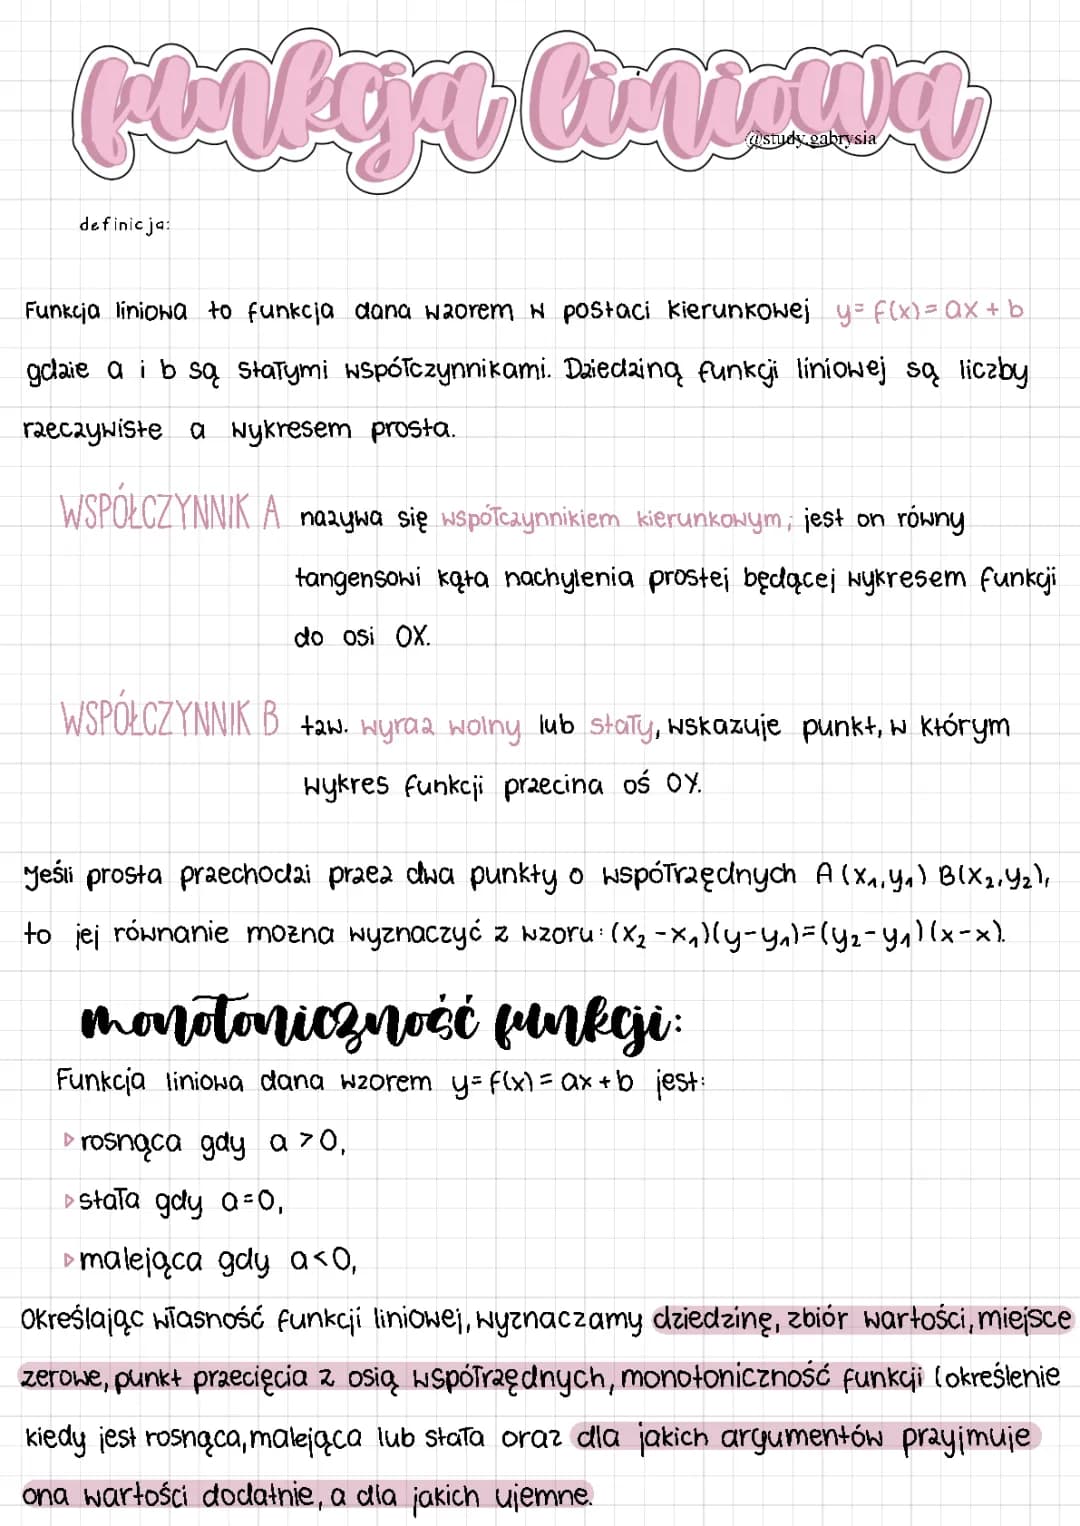 funkcja liniowa
@study.gabrysia
definicja:
Funkcja liniowa to funkcja dana wzorem w postaci kierunkowej y = f(x) = ax + b
gdzie a i b są stałymi współczynnikami. Dziedziną funkcji liniowej są liczby
rzeczywiste a wykresem prosta.
WSPÓŁCZYNNIK A nazywa się współczynnikiem kierunkowym; jest on równy
tangensowi kąta nachylenia prostej będącej wykresem funkcji
do osi OX.
WSPÓŁCZYNNIK B tzw. wyraz wolny lub stały, wskazuje punkt, w którym
wykres funkcji przecina oś OY.
Jeśli prosta przechodzi przez dwa punkty o współrzędnych A (x₁,y₁) B(x₂,y₂),
to jej równanie można wyznaczyć z wzoru: (x₂ -x₁)(y-y₁)=(y₂-y₁)(x-x).
monotoniczność funkcji:
Funkcja liniowa dana wzorem y= f(x) = ax + b jest:
▷ rosnąca gdy a > 0,
▷ stała gdy a = 0,
▷ malejąca gdy a < 0,
Określając własność funkcji liniowej, wyznaczamy dziedzinę, zbiór wartości, miejsce
zerowe, punkt przecięcia z osią współrzędnych, monotoniczność funkcji (określenie
kiedy jest rosnąca, malejąca lub stała oraz dla jakich argumentów przyjmuje
ona wartości dodatnie, a dla jakich ujemne.